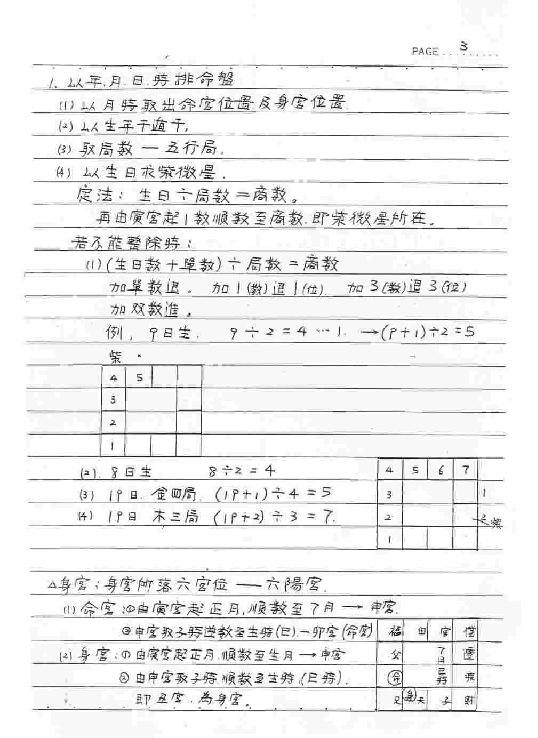 PAGE 3
1. 以年.月.日.時排命盤
(1) 以月時取出命宮位置及身宮位置
(2) 以生年干遁干.
(3) 取局數 — 五行局.
(4) 以生日求紫微星.
定法: 生日÷局數=商數。
再由寅宮起1數順數至商數.即紫微星所在。
若不能整除時:
(1) (生日數+單數)÷局數=商數
加單數退。 加1(數)退1(位) 加3(數)退3(位)
加双數進。
例, 9日生. 9÷2=4…1. →(9+1)÷2=5
紫
4 5
3
2
1
(2). 8日生 8÷2=4
(3) 19日.金四局. (19+1)÷4=5
(4) 19日 木三局 (19+2)÷3=7.
4 5 6 7
3 1
2 2 紫
1
△身宮:身宮所落六宮位 — 六陽宮.
(1) 命宮:①由寅宮起正月,順數至7月 → 申宮.
②申宮取子時逆數至生時(巳).—卯宮(命宮)
(2) 身宮:①由寅宮起正月.順數至生月 → 申宮
②由申宮取子時順數至生時.(巳時).
即丑宮.為身宮。
福 田 官 僕
父 7月 遷
命 巳時 疾
兄 身夫 子 財